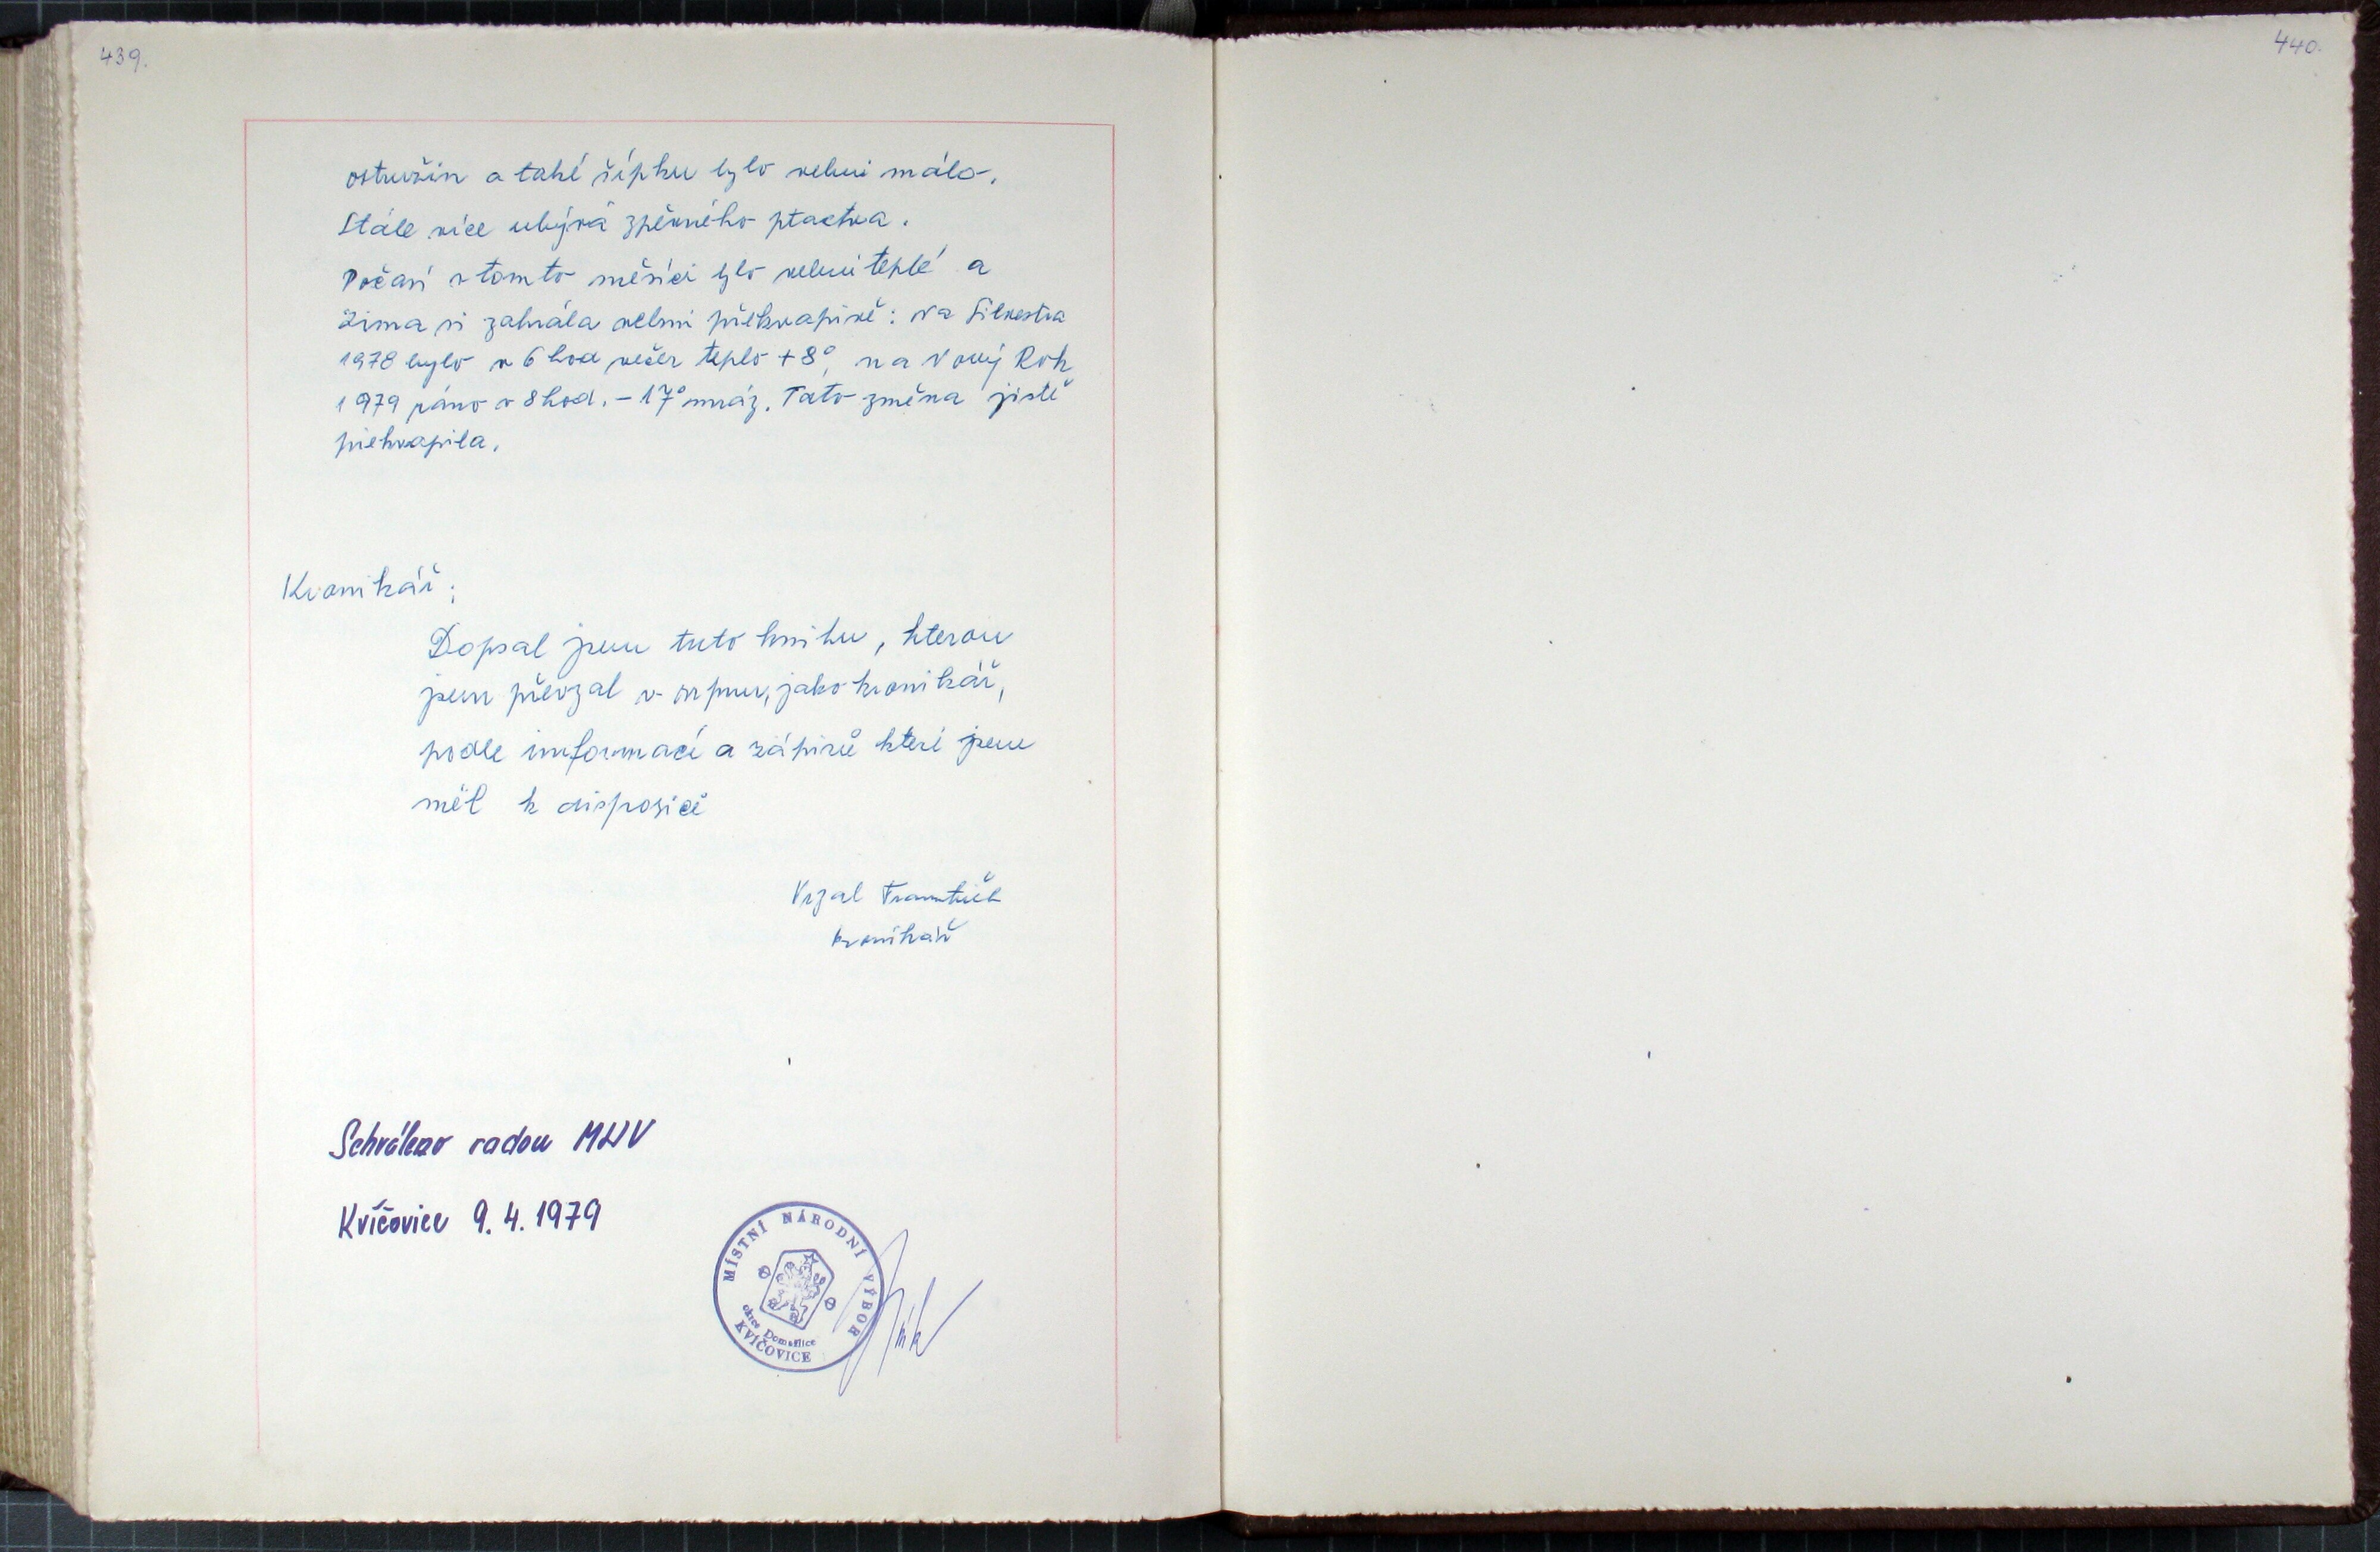 439.
440.
ostružin a také šípku bylo velmi málo.
Stále více ubývá zpěvného ptactva.
Počasí v tomto měsíci bylo velmi teplé a
zima si zahrála velmi překvapivě: Na Silvestra
1978 bylo v 6 hod večer teplo +8°, na Nový Rok
1979 ráno v 8 hod. – 17° mráz. Tato změna jistě
překvapila.
Kronikář:
Dopsal jsem tuto knihu, kterou
jsem převzal v srpnu, jako kronikář,
podle imformací a zápisů které jsem
měl k disposici
Vrzal František
kronikář
Schváleno radou MNV
Kvíčovice 9. 4. 1979
MÍSTNÍ NÁRODNÍ VÝBOR
okres Domažlice
KVÍČOVICE